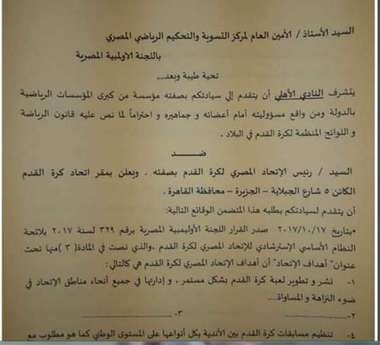 السيد الأستاذ / الأمين العام لمركز التسوية والتحكيم الرياضي المصري
باللجنة الاولمبية المصرية
تحية طيبة وبعد...
يتشرف النادي الأهلي أن يتقدم إلي سيادتكم بصفته مؤسسة من كبرى المؤسسات الرياضية
بالدولة ومن واقع مسؤوليته أمام أعضائه و جماهيره و احتراماً لما نص عليه قانون الرياضة
و اللوائح المنظمة لكرة القدم في البلاد .
ضد
السيد / رئيس الإتحاد المصري لكرة القدم بصفته . ويعلن بمقر اتحاد كرة القدم
الكائن ٥ شارع الجبلاية – الجزيرة – محافظة القاهرة .
أن يتقدم لسيادتكم بطلبه هذا المتضمن الوقائع التالية:
بتاريخ ٢٠١٧/١٠/١٧ صدر القرار اللجنة الأوليمبية المصرية برقم ٣٢٩ لسنة ٢٠١٧ بلائحة
النظام الأساسي الإسترشادي للإتحاد المصري لكرة القدم .والذي نصت في المادة( ٣ )منها تحت
عنوان" أهداف الإتحاد" أن أهداف الإتحاد المصري لكرة القدم هي كالتالي:
١- نشر و تطوير لعبة كرة القدم بشكل مستمر ، و إدارتها في جميع أنحاء مناطق الإتحاد في
ضوء النزاهة و المساواة....
٢- ٣-
٤- تنظيم مسابقات كرة القدم بين الأندية بكل أنواعها على المستوى الوطني كما هو مطلوب مع